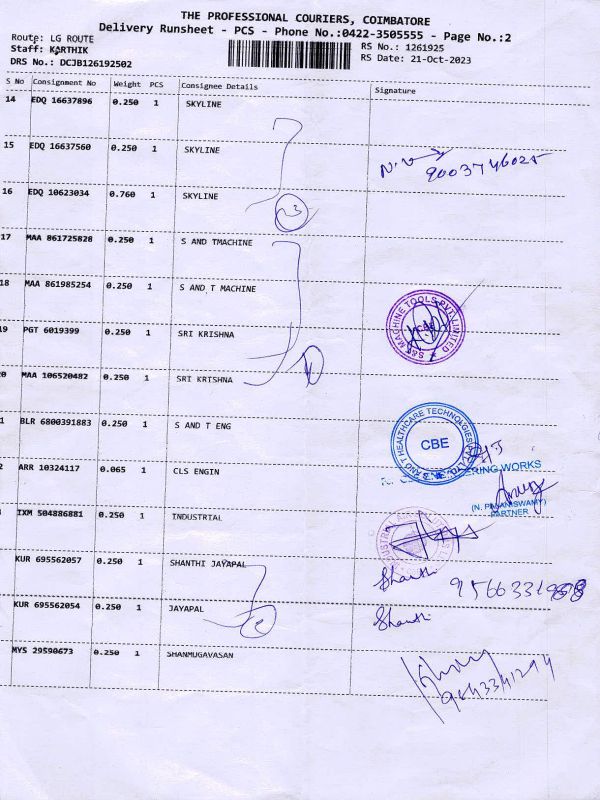 THE PROFESSIONAL COURIERS, COIMBATORE
Delivery Runsheet - PCS - Phone No.:0422-3505555 - Page No.:2
Route: LG ROUTE
Staff: KARTHIK
DRS No.: DCJB126192502
RS No.: 1261925
RS Date: 21-Oct-2023
S No Consignment No Weight PCS Consignee Details Signature
14 EDQ 16637896 0.250 1 SKYLINE
15 EDQ 16637560 0.250 1 SKYLINE
9003746025
16 EDQ 10623034 0.760 1 SKYLINE
3
17 MAA 861725828 0.250 1 S AND TMACHINE
18 MAA 861985254 0.250 1 S AND T MACHINE
S&T MACHINE TOOLS PVT. LIMITED
CBE
19 PGT 6019399 0.250 1 SRI KRISHNA
0 MAA 106520482 0.250 1 SRI KRISHNA
1 BLR 6800391883 0.250 1 S AND T ENG
S AND T HEALTHCARE TECHNOLOGIES
CBE
2 ARR 10324117 0.065 1 CLS ENGIN
ENGINEERING WORKS
(N. PALANISWAMY)
PARTNER
IXM 504886881 0.250 1 INDUSTRIAL
KUR 695562057 0.250 1 SHANTHI JAYAPAL
Shanthi
KUR 695562054 0.250 1 JAYAPAL
Shanthi
MYS 29590673 0.250 1 SHANMUGAVASAN
9843341294